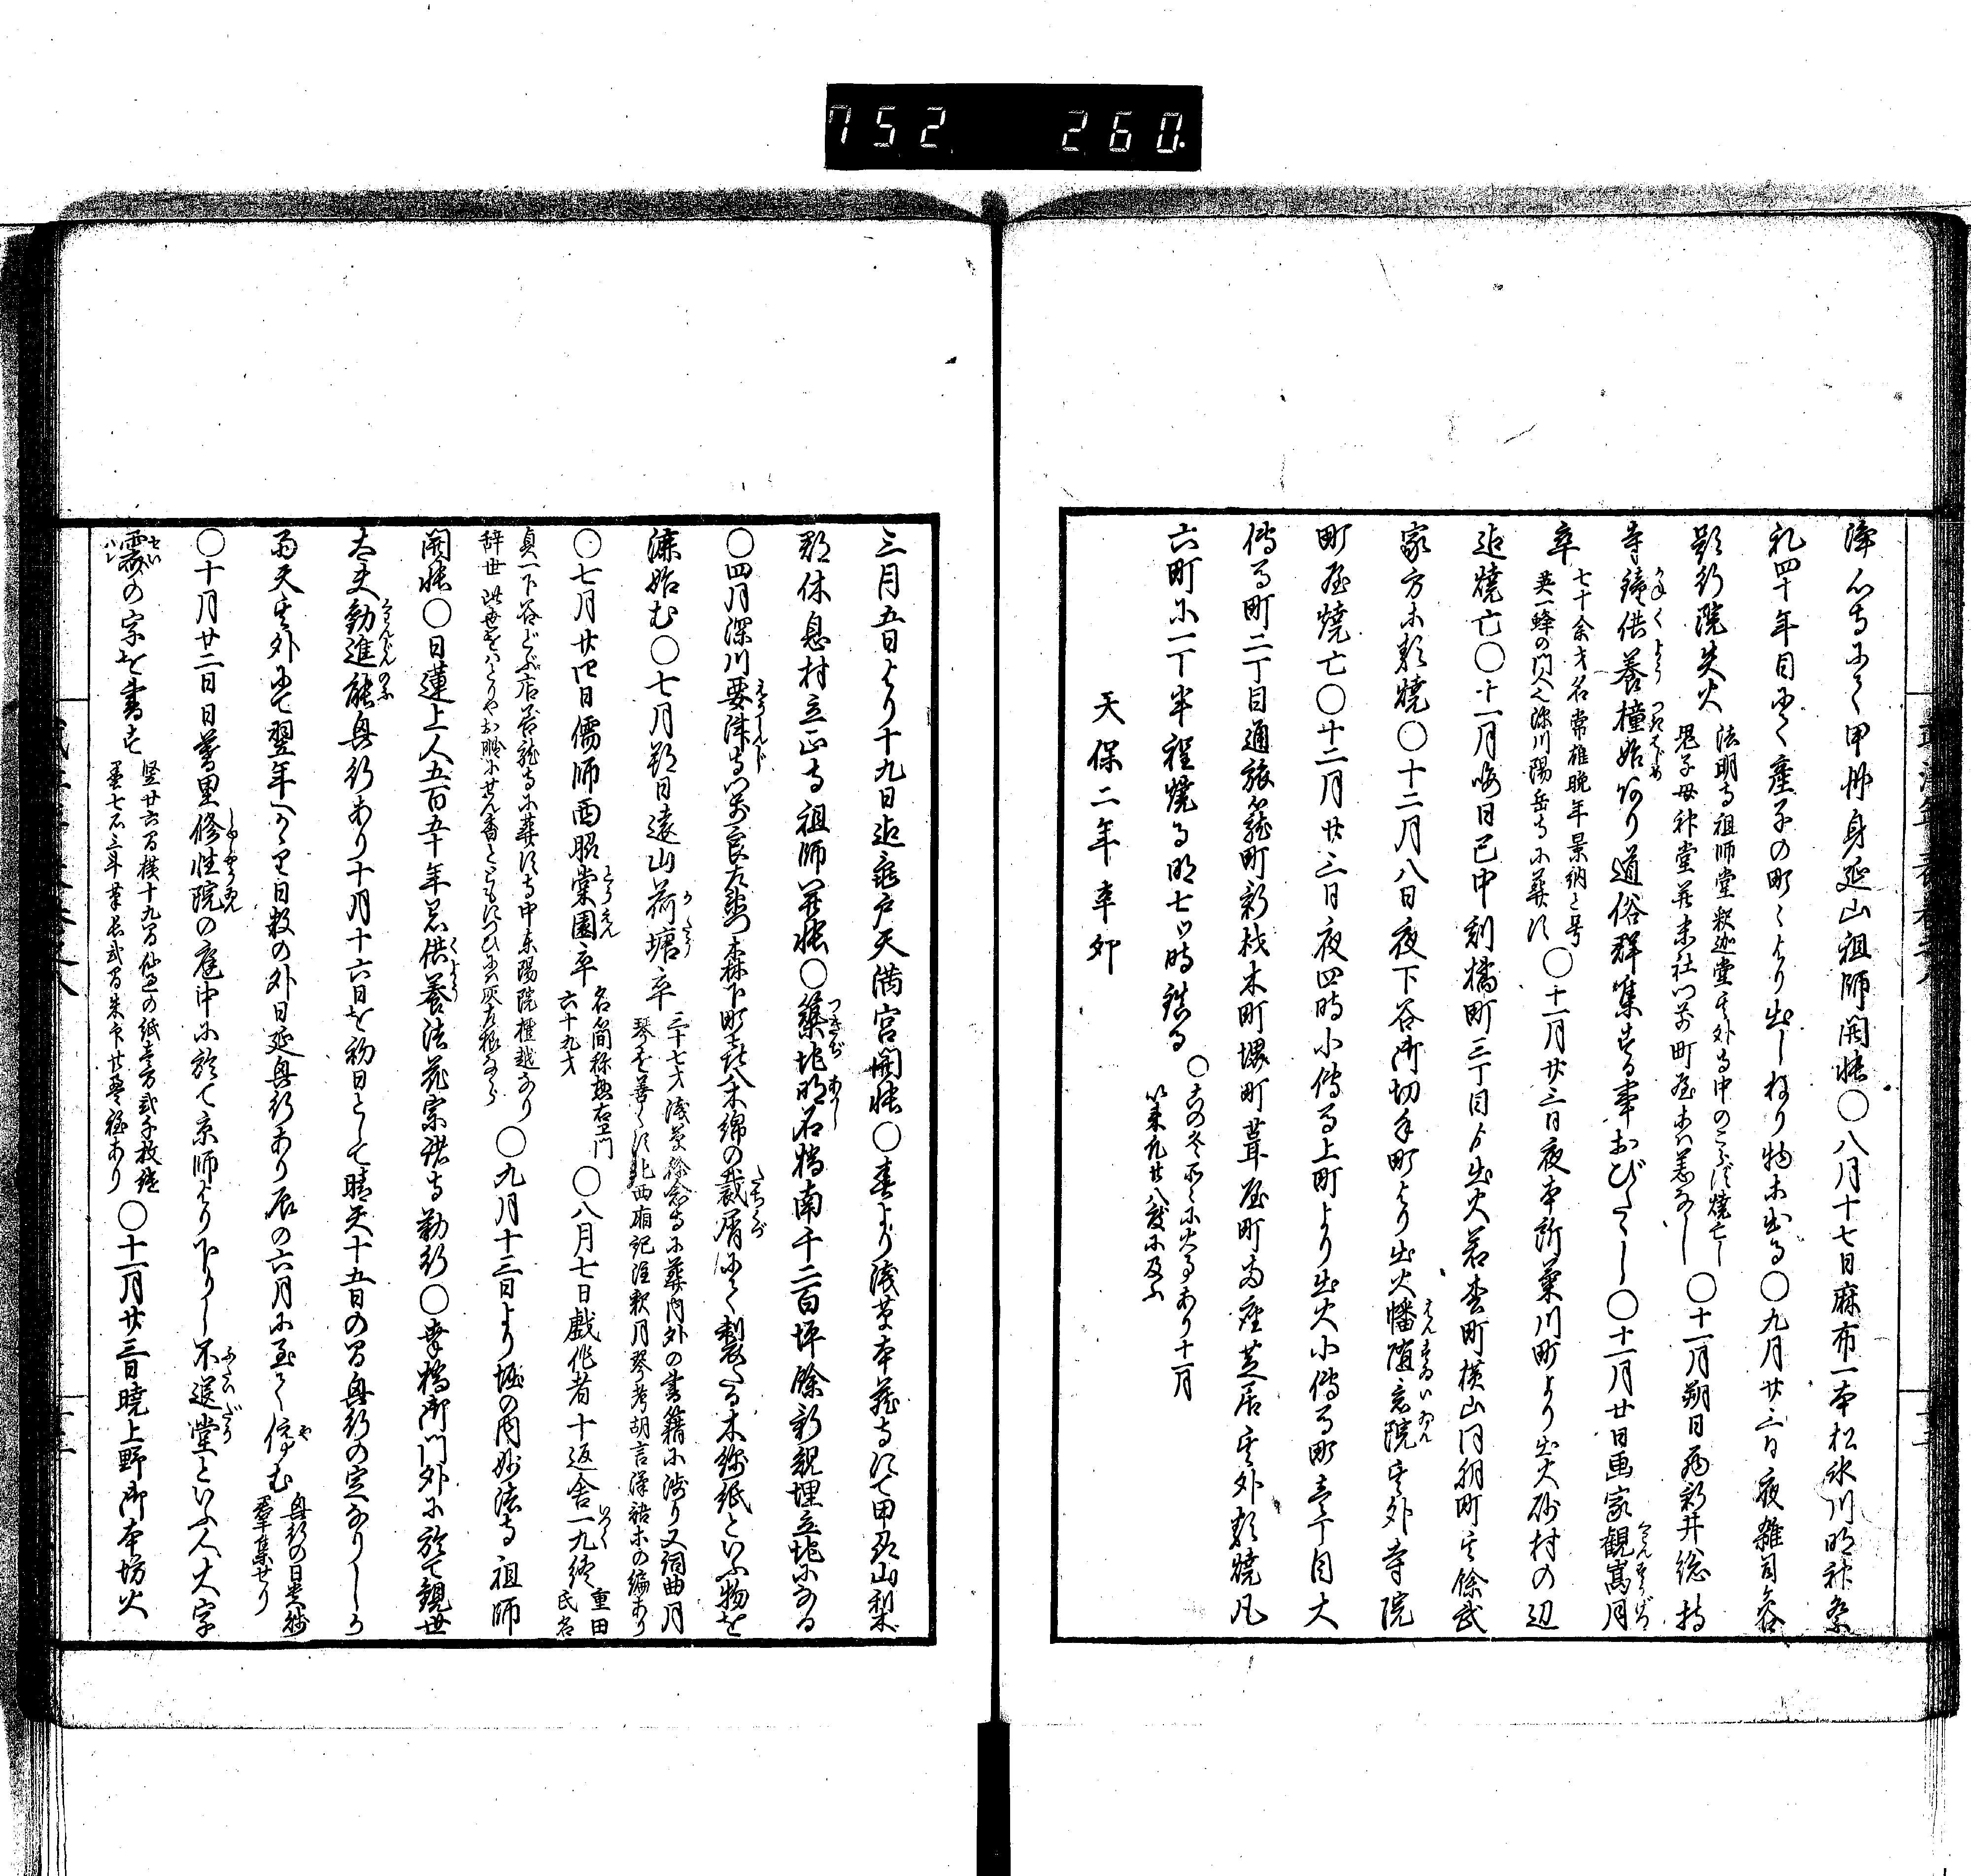 752 260.
浄心寺にて甲州身延山祖師開帳〇八月十七日麻布一本松氷川明神祭
礼四十年目にて産子の町々より出しねり物等出る〇九月廿三日夜雑司谷
影行院失火
法明寺祖師堂釈迦堂其外寺中のこらず焼亡し
鬼子母神堂并末社門前町屋等は恙なし
〇十一月朔日 新井総持
寺鐘供養撞始あり道俗群集する事おびたゝし〇十一月廿日画家観嵩月
卒
七十余才名常雄晩年景納と号
英一蜂の門人也深川陽岳寺に葬す
〇十一月廿三日夜本所菊川町より出火砂村の辺
迄焼亡〇十一月晦日巳中刻橘町三丁目より出火若松町横山同朋町其余武
家方等類焼〇十二月八日夜下谷御切手町より出火幡随意院其外寺院
町屋焼亡〇十二月廿三日夜四時小伝馬上町より出火小伝馬町壱丁目大
伝馬町二丁目通旅籠町新材木町堺町葺屋町両座芝居其外類焼凡
六町に一丁半程焼る明七ツ時鎮る
〇この冬所々に火事あり十一月
以来凡廿八度に及ふ
天保二年辛卯
三月五日より十九日迄亀戸天満宮開帳〇春より浅草本蔵寺にて甲州山梨
郡休息村立正寺祖師開帳〇築地明石橋南千二百坪余新規埋立地になる
〇四月深川要津寺門前良左衛門森下町喜八木綿の裁屑にて製たる木綿紙といふ物を
漉始む〇七月朔日遠山荷塘卒
三十七才浅草徐念寺に葬門外の書籍に渉り又詞曲月
琴を善くす北西廂記注釈月琴考胡言漢語等の編あり
〇七月廿四日儒師西昭棠園卒
名簡称弥右衛門
六十九才
〇八月七日戯作者十返舎一九終
重田
氏名
貞一下谷どぶ店善龍寺に葬す寺中東陽院檀越なり
辞世 此世をはとりやお暇にせん香とともにつひには灰左様なら
〇九月十三日より堀の内妙法寺祖師
開帳〇日蓮上人五百五十年忌供養法花宗諸寺勤行〇幸橋御門外に於て観世
太夫勧進能興行あり十月十六日を初日として晴天十五日の間興行の定なりしか
雨天其外にて翌年へかけ日数の外日延興行あり辰の六月に至て停む
興行の日貴賤
群集せり
〇十月廿二日日暮里修性院の庭中に於て京師より下りし不退堂といふ人大字
霽の字を書す
竪廿六間横十九間仙過の紙壱万弐千枚継
墨七石三斗筆長弐間朱印廿畳程あり
〇十一月廿三日暁上野御本坊火